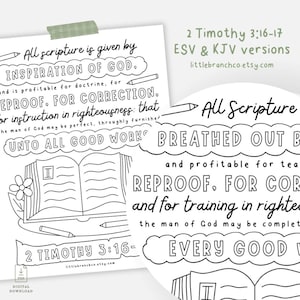 2 Timothy 3:16-17
ESV & KJV versions
littlebranchco.etsy.com
All scripture is given by
INSPIRATION OF GOD,
and is profitable for doctrine, for
REPROOF, FOR CORRECTION,
for instruction in righteousness: that
the man of God may be perfect, throughly furnished
UNTO ALL GOOD WORKS
2 TIMOTHY 3:16-
littlebranchco.etsy.com
DIGITAL
DOWNLOAD
All Scripture
BREATHED OUT B
and profitable for tea
REPROOF, FOR COR
and for training in righte
the man of God may be complet
EVERY GOOD